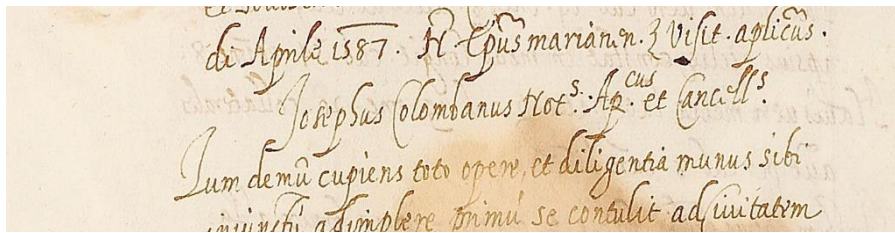 di Aprile 1587. N. Ep̄us marianen. & Visit. ap̄licus.
Josephus Colombanus Not.s Ap.cus et Cancell.s
Tum demū cupiens toto opere, et diligentia munus sibi
iniunctū adimplere primū se contulit ad Ciuitatem